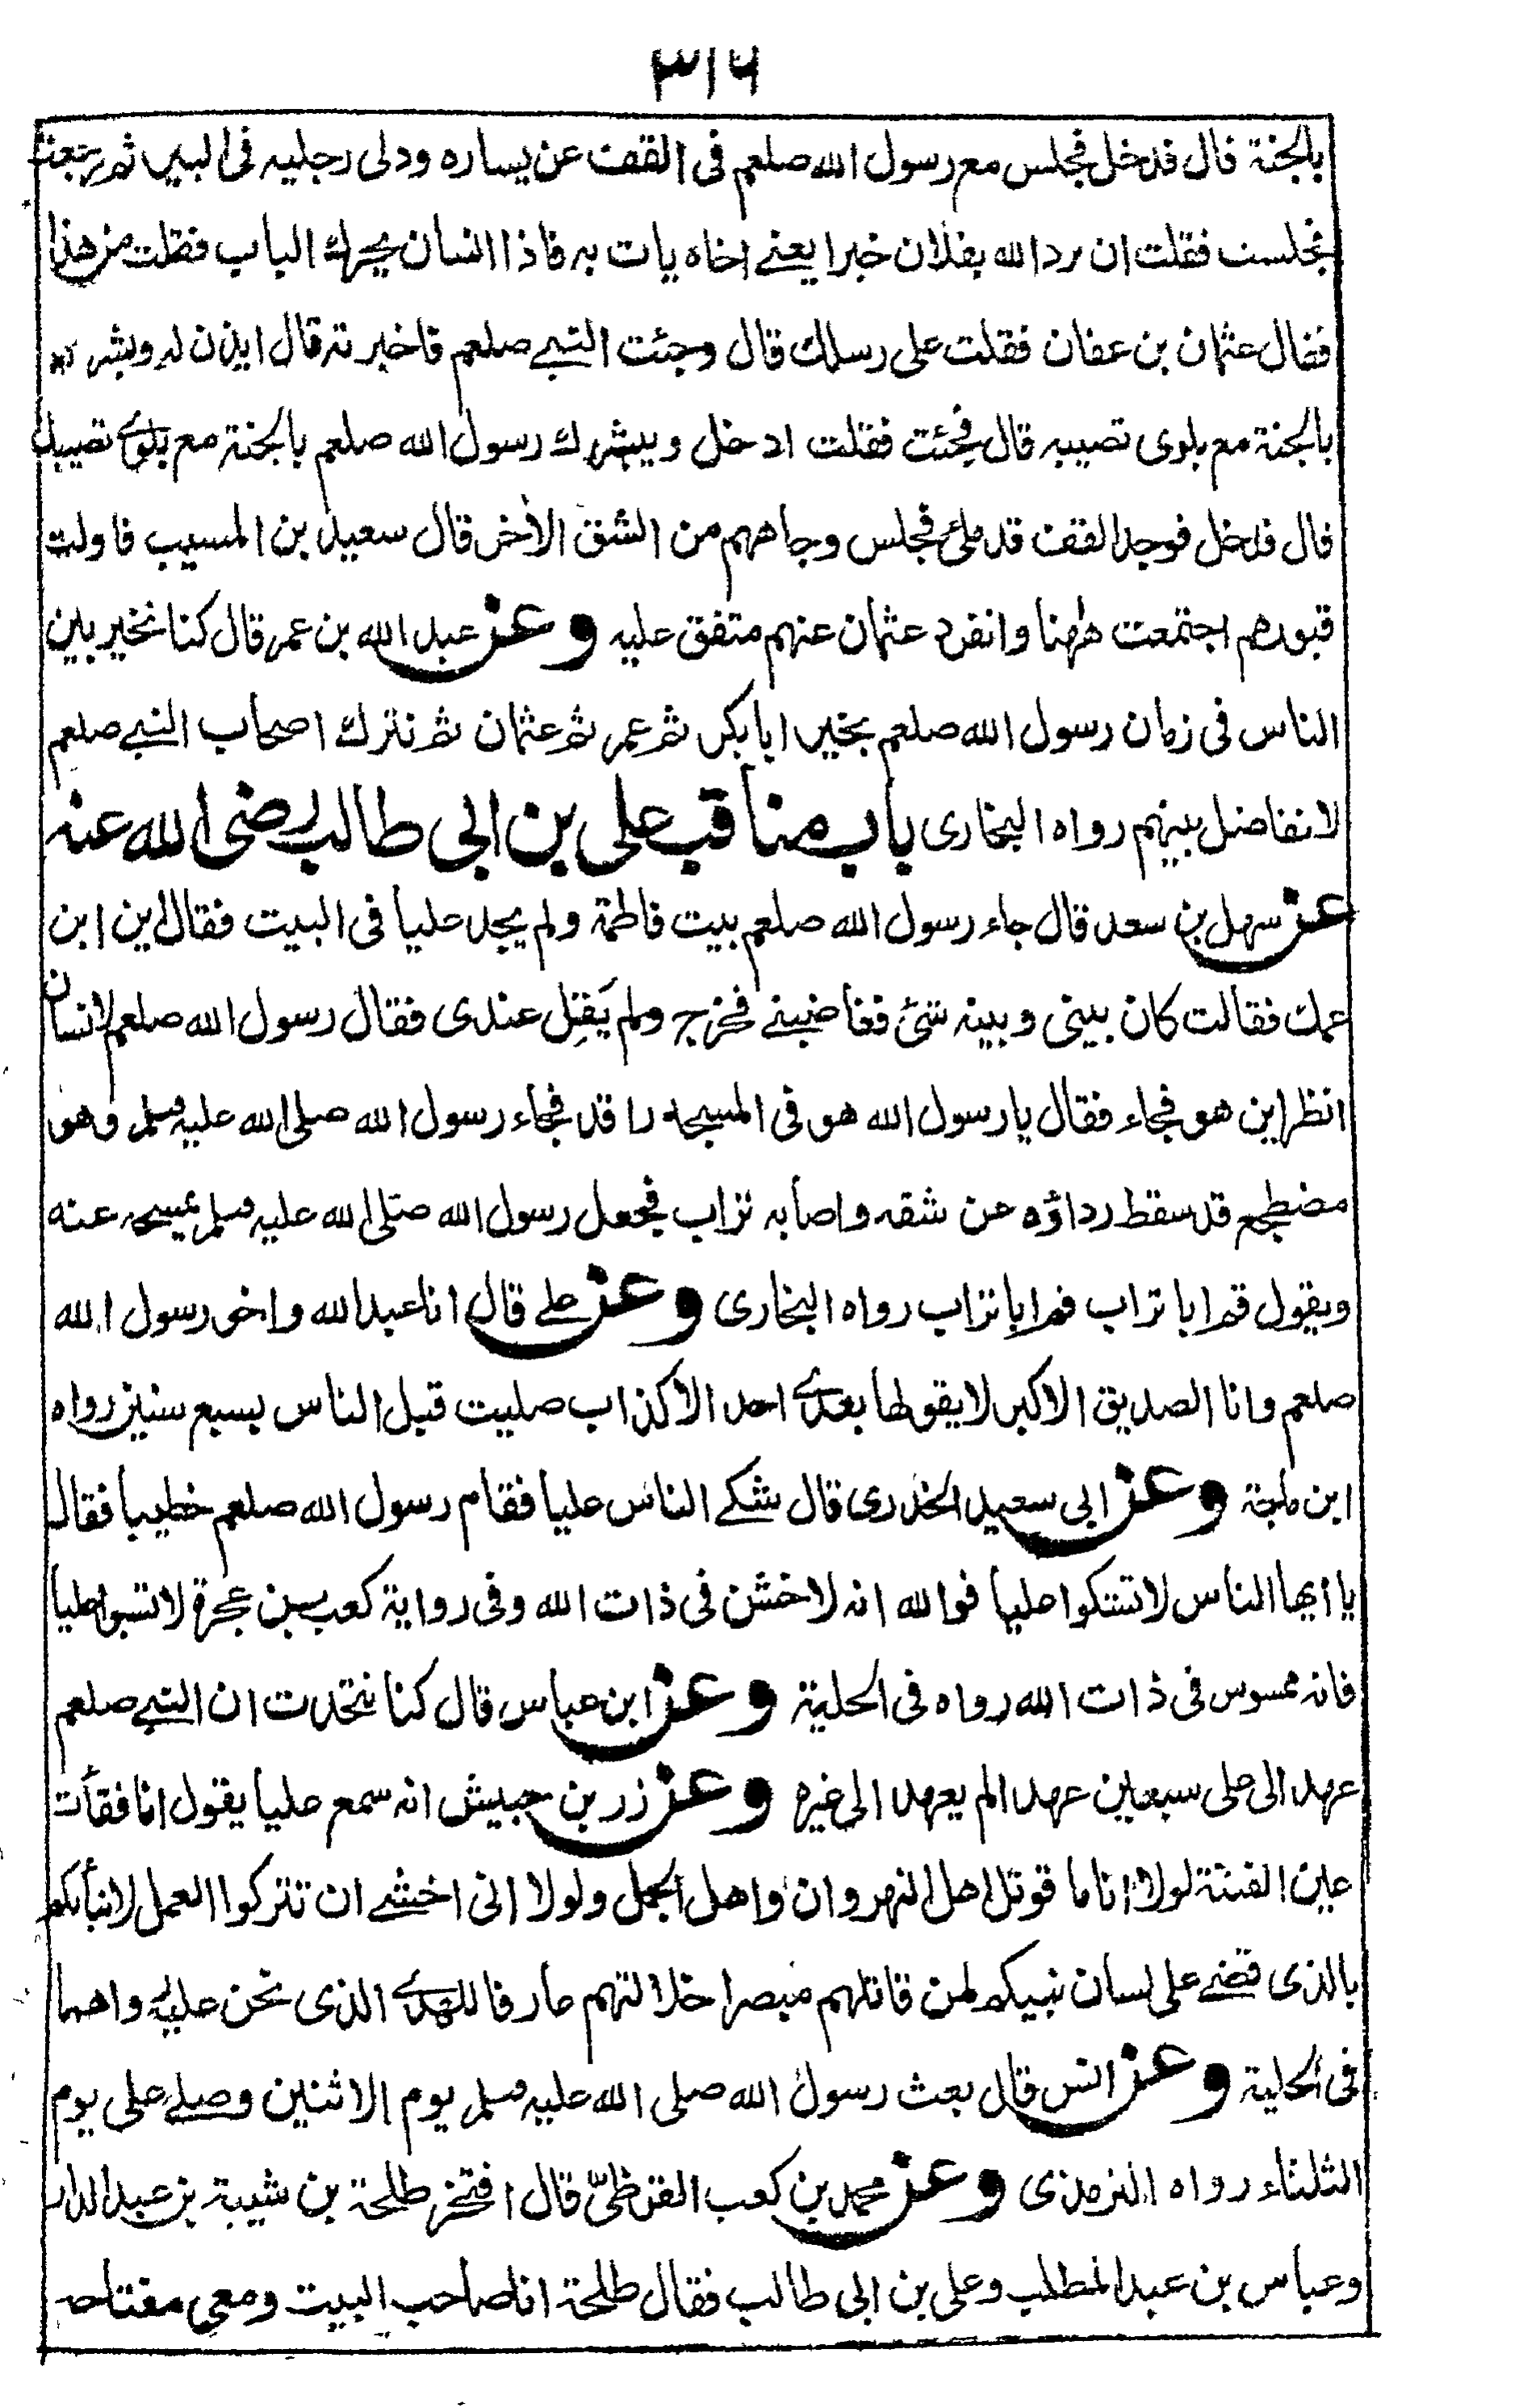 ٣١٦
بالجنة قال فدخل فجلس مع رسول الله صلعم فى القف عن يساره ودلى رجليه فى البير ثم رجعت
فجلست فقلت ان يرد الله بفلان خيرا يعنے اخاه يات به فاذا انسان يحرك الباب فقلت من هذا
فقال عثمان بن عفان فقلت على رسلك قال وجئت النبے صلعم فاخبرته قال ايذن له وبشره
بالجنة مع بلوى تصيبه قال فجئت فقلت ادخل ويبشرك رسول الله صلعم بالجنة مع بلوے تصيبك
قال فدخل فوجد القف قد ملئ فجلس وجاههم من الشق الاخر قال سعيد بن المسيب فاولت
قبورهم اجتمعت ههنا وانفرد عثمان عنهم متفق عليه وعن عبد الله بن عمر قال كنا نخير بين
الناس فى زمان رسول الله صلعم بخير ابا بكر ثم عمر ثم عثمان ثم نترك اصحاب النبے صلعم
لا نفاضل بينهم رواه البخارى باب مناقب على بن ابى طالب رضى الله عنه
عن سهل بن سعد قال جاء رسول الله صلعم بيت فاطمة ولم يجد عليا فى البيت فقال اين ابن
عمك فقالت كان بينى وبينه شئ فغاضبنے فخرج ولم يَقِل عندى فقال رسول الله صلعم لانسان
انظر اين هو فجاء فقال يا رسول الله هو فى المسجد راقد فجاء رسول الله صلى الله عليه وسلم وهو
مضطجع قد سقط رداؤه عن شقه واصابه تراب فجعل رسول الله صلى الله عليه وسلم يمسحه عنه
ويقول قم ابا تراب قم ابا تراب رواه البخارى وعن علے قال انا عبد الله واخو رسول الله
صلعم وانا الصديق الاكبر لا يقولها بعدے احد الا كذاب صليت قبل الناس بسبع سنين رواه
ابن ماجة وعن ابى سعيد الخدرى قال شكے الناس عليا فقام رسول الله صلعم خطيبا فقال
يا ايها الناس لا تشكوا عليا فوالله انه لاخشن فى ذات الله وفى رواية كعب بن عجرة لا تسبوا عليا
فانه ممسوس فى ذات الله رواه فى الحلية وعن ابن عباس قال كنا نتحدث ان النبے صلعم
عهد الى على سبعين عهدا لم يعهد الى غيره وعن زر بن حبيش انه سمع عليا يقول انا فقأت
عين الفتنة لولا انا ما قوتل اهل النهروان واهل الجمل ولولا انى اخشے ان تتركوا العمل لانبأتكم
بالذى قضے على لسان نبيكم لمن قاتلهم مبصرا ضلالتهم عارفا للهدے الذى نحن عليه رواهما
فى الحلية وعن انس قال بعث رسول الله صلى الله عليه وسلم يوم الاثنين وصلے على يوم
الثلثاء رواه الترمذى وعن محمد بن كعب القرظىّ قال افتخر طلحة بن شيبة بن عبد الدار
وعباس بن عبد المطلب وعلى بن ابى طالب فقال طلحة انا صاحب البيت ومعى مفتاحه